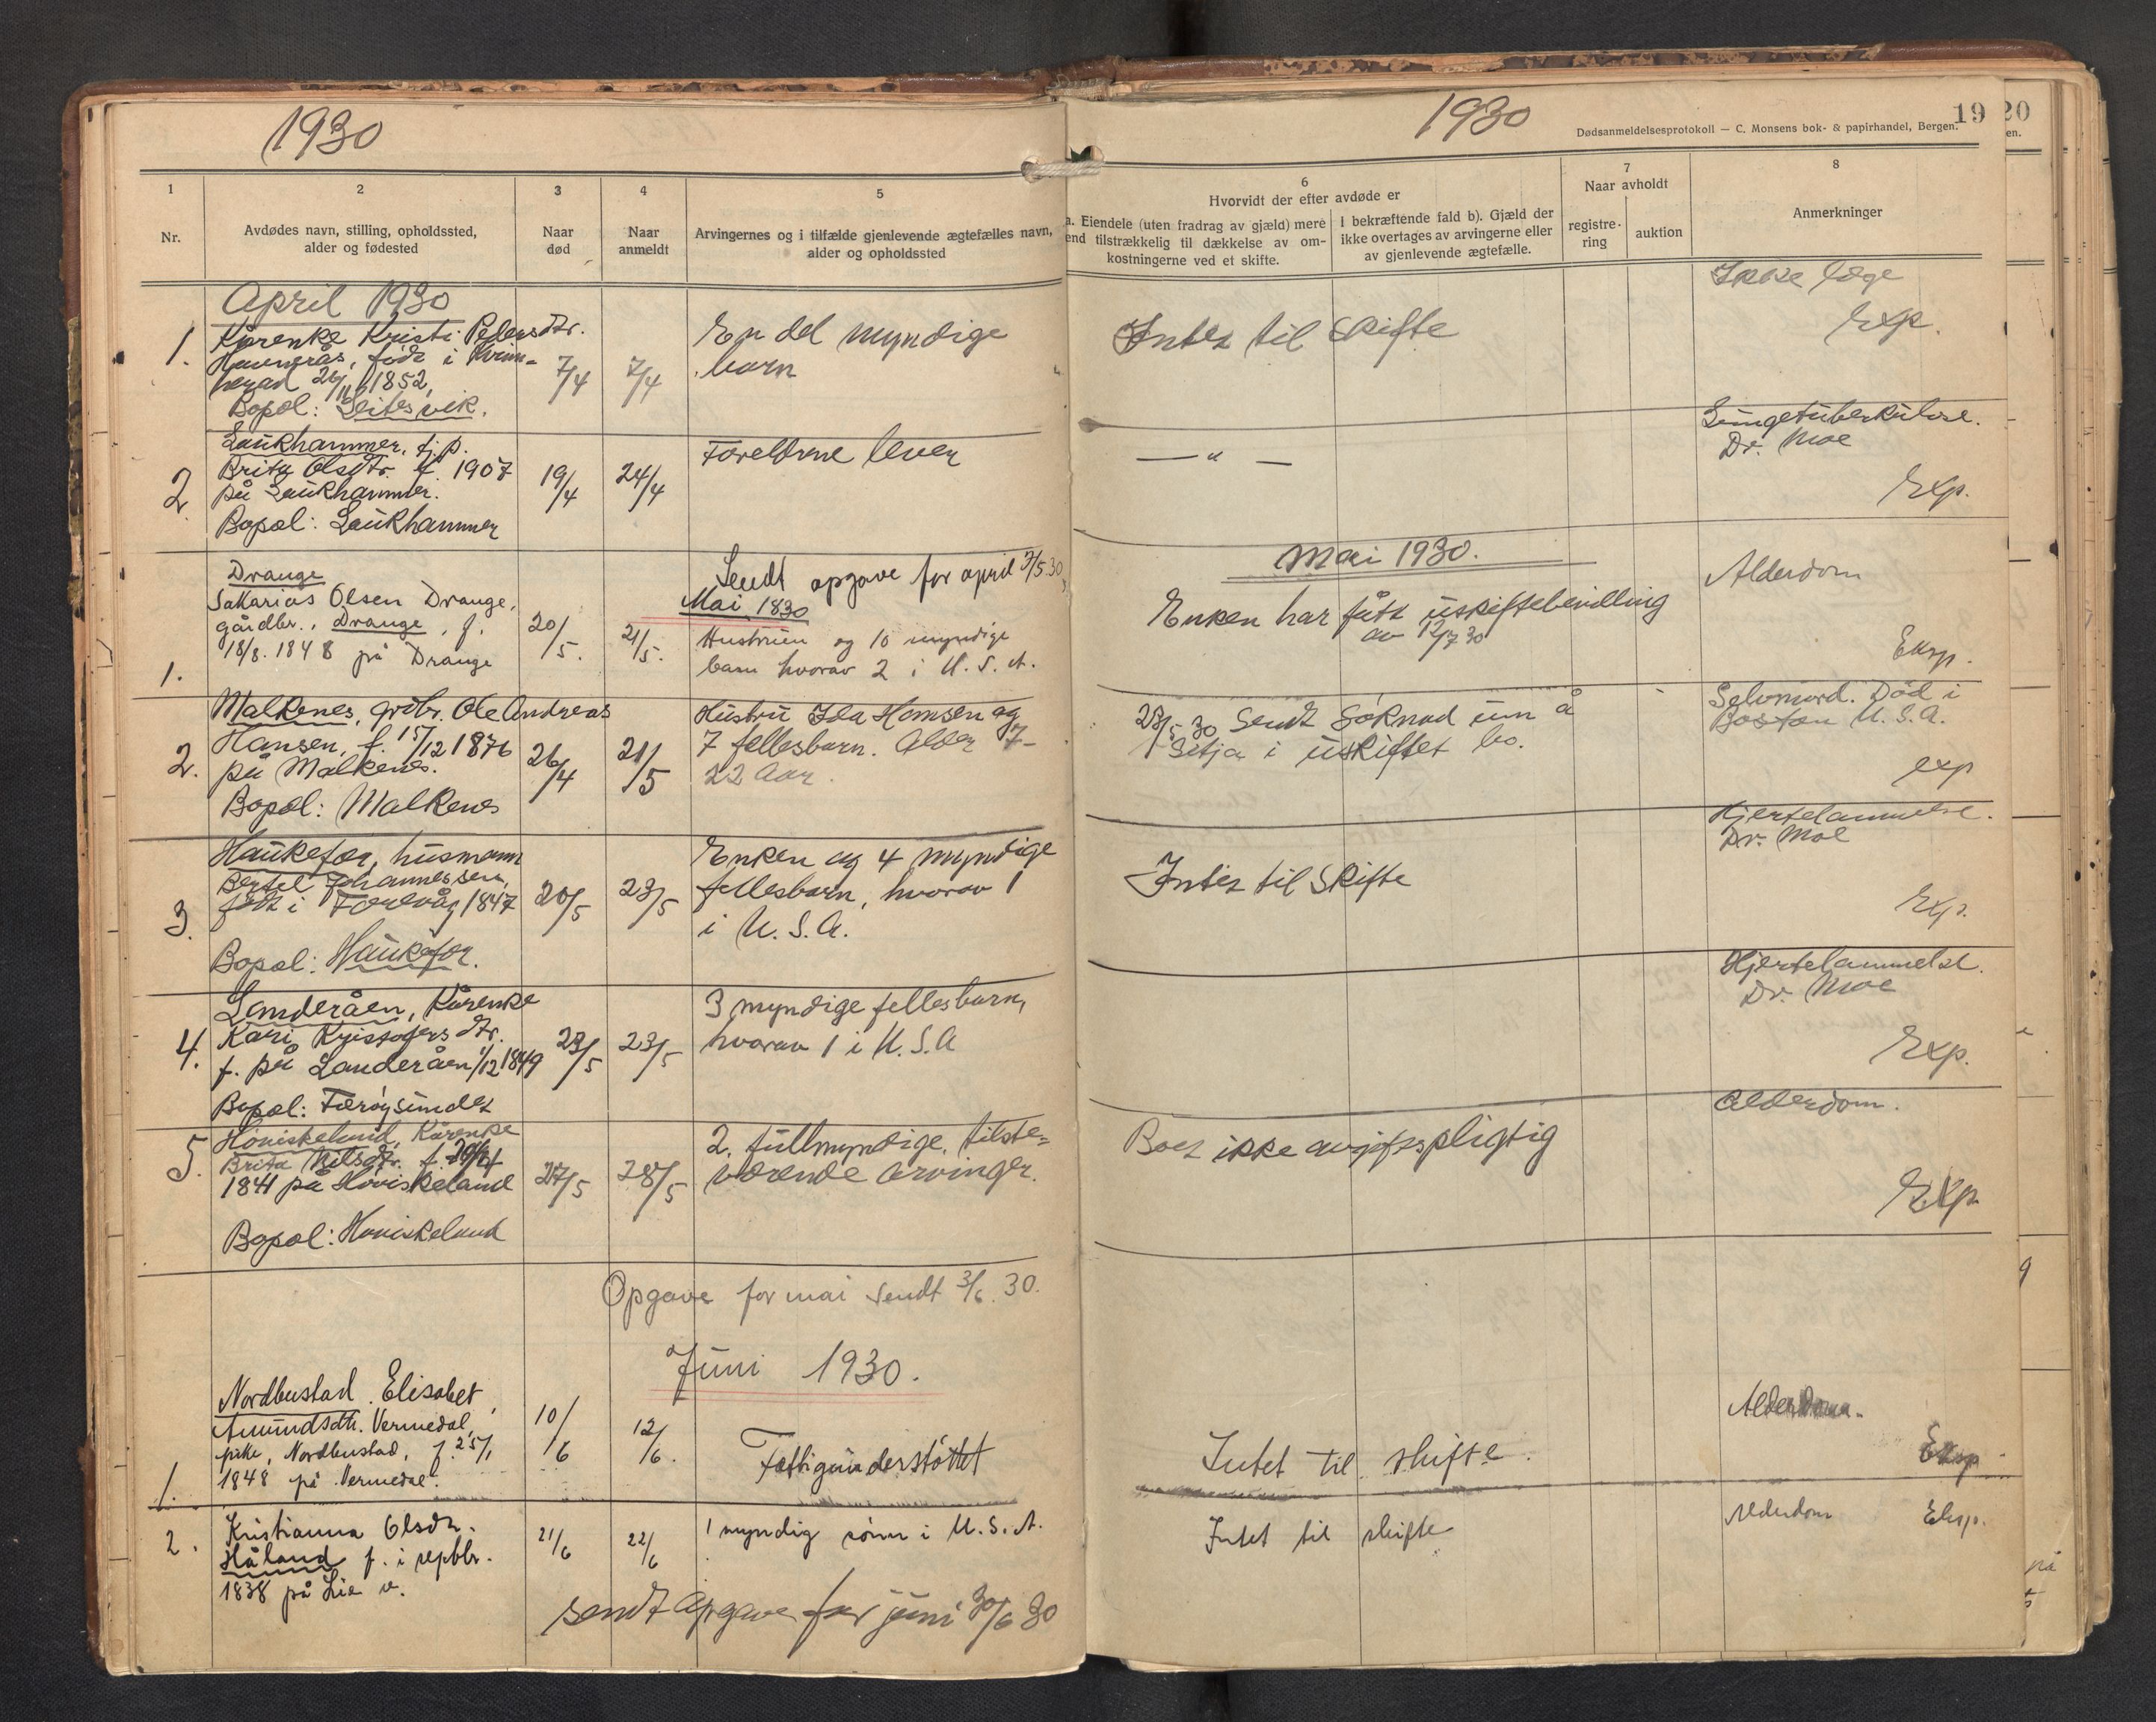 1930
1
2
3
4
5
Nr.
Avdødes navn, stilling, opholdssted,
alder og fødested
Naar
død
Naar
anmeldt
Arvingernes og i tilfælde gjenlevende ægtefælles navn,
alder og opholdssted
April 1930
1.
Kårenke Kristi Pedersdtr.
født i Kvinn-
herad 26/11 1852,
Bopæl: Leitesvik.
7/4
7/4
En del myndige
barn
2.
Laukhammer, tj.p.
Brita Olsdtr. f. 1907
på Laukhammer.
Bopæl: Laukhammer
19/4
24/4
Foreldrene lever
Sendt opgave for april 3/5 30
Mai 1830
1.
Drange
Sakarias Olsen Drange,
gårdbr., Drange, f.
18/8. 1848 på Drange
20/5.
21/5.
Hustruen og 10 myndige
barn hvorav 2 i U.S.A.
2.
Malkenes, grdbr. Ole Andreas
Hansen, f. 15/12 1876
på Malkenes.
Bopæl: Malkenes
26/4
21/5
Hustru Ida Hansen og
7 fellesbarn. Alder 7-
22 Aar.
3.
Haukefær, husmann
Bertel Johannessen,
født i Førevåg 1847
Bopæl: Haukefær.
20/5
23/5
Enken og 4 myndige
fellesbarn, hvorav 1
i U.S.A.
4.
Landeråen, Kårenke
Kari Kristofersdtr.
f. på Landeråen 1/12 1849
Bopæl: Færøysundet
23/5
23/5
3 myndige fellesbarn,
hvorav 1 i U.S.A
5.
Hoviskeland, Kårenke
Brita Nilsdtr. f.
1841 på Hoviskeland
Bopæl: Hoviskeland
27/5
28/5
2 fullmyndige, tilste-
værende arvinger.
Opgave for mai sendt 3/6. 30.
Juni 1930.
1.
Nordbustad Elisabet
Amundsdtr. Vermedal,
pike, Nordbustad, f. 25/1
1848 på Vermedal.
10/6
12/6.
Fattigunderstøttet
2.
Kristianna Olsdtr.
Håland f. i septbr.
1838 på Lie v.
21/6
22/6
1 myndig sønn i U.S.A.
sendt opgave for juni 30/6 30
1930
19
20
Dødsanmeldelsesprotokoll — C. Monsens bok- & papirhandel, Bergen.
en.
6
Hvorvidt der efter avdøde er
a. Eiendele (uten fradrag av gjæld) mere
end tilstrækkelig til dækkelse av om-
kostningerne ved et skifte.
I bekræftende fald b). Gjæld der
ikke overtages av arvingerne eller
av gjenlevende ægtefælle.
7
Naar avholdt
registre-
ring
auktion
8
Anmerkninger
Intet til skifte
Ikke læge
Exp.
— " —
Lungetuberkulose.
Dr. Moe
Exp.
Mai 1930.
Enken har fått uskiftebevilling
av 12/7 30
Alderdom
Eksp.
28/5 30 Sendt søknad um å
sitja i uskiftet bo.
Selvmord. Død i
Boston U.S.A.
exp
Intet til skifte
Hjertelammelse.
Dr. Moe
Exp.
Hjertelammelse.
Dr. Moe
Exp.
Boet ikke avgiftspligtig
Alderdom.
Exp.
Intet til skifte.
Alderdom.
Eksp.
Intet til skifte
Alderdom
Eksp.